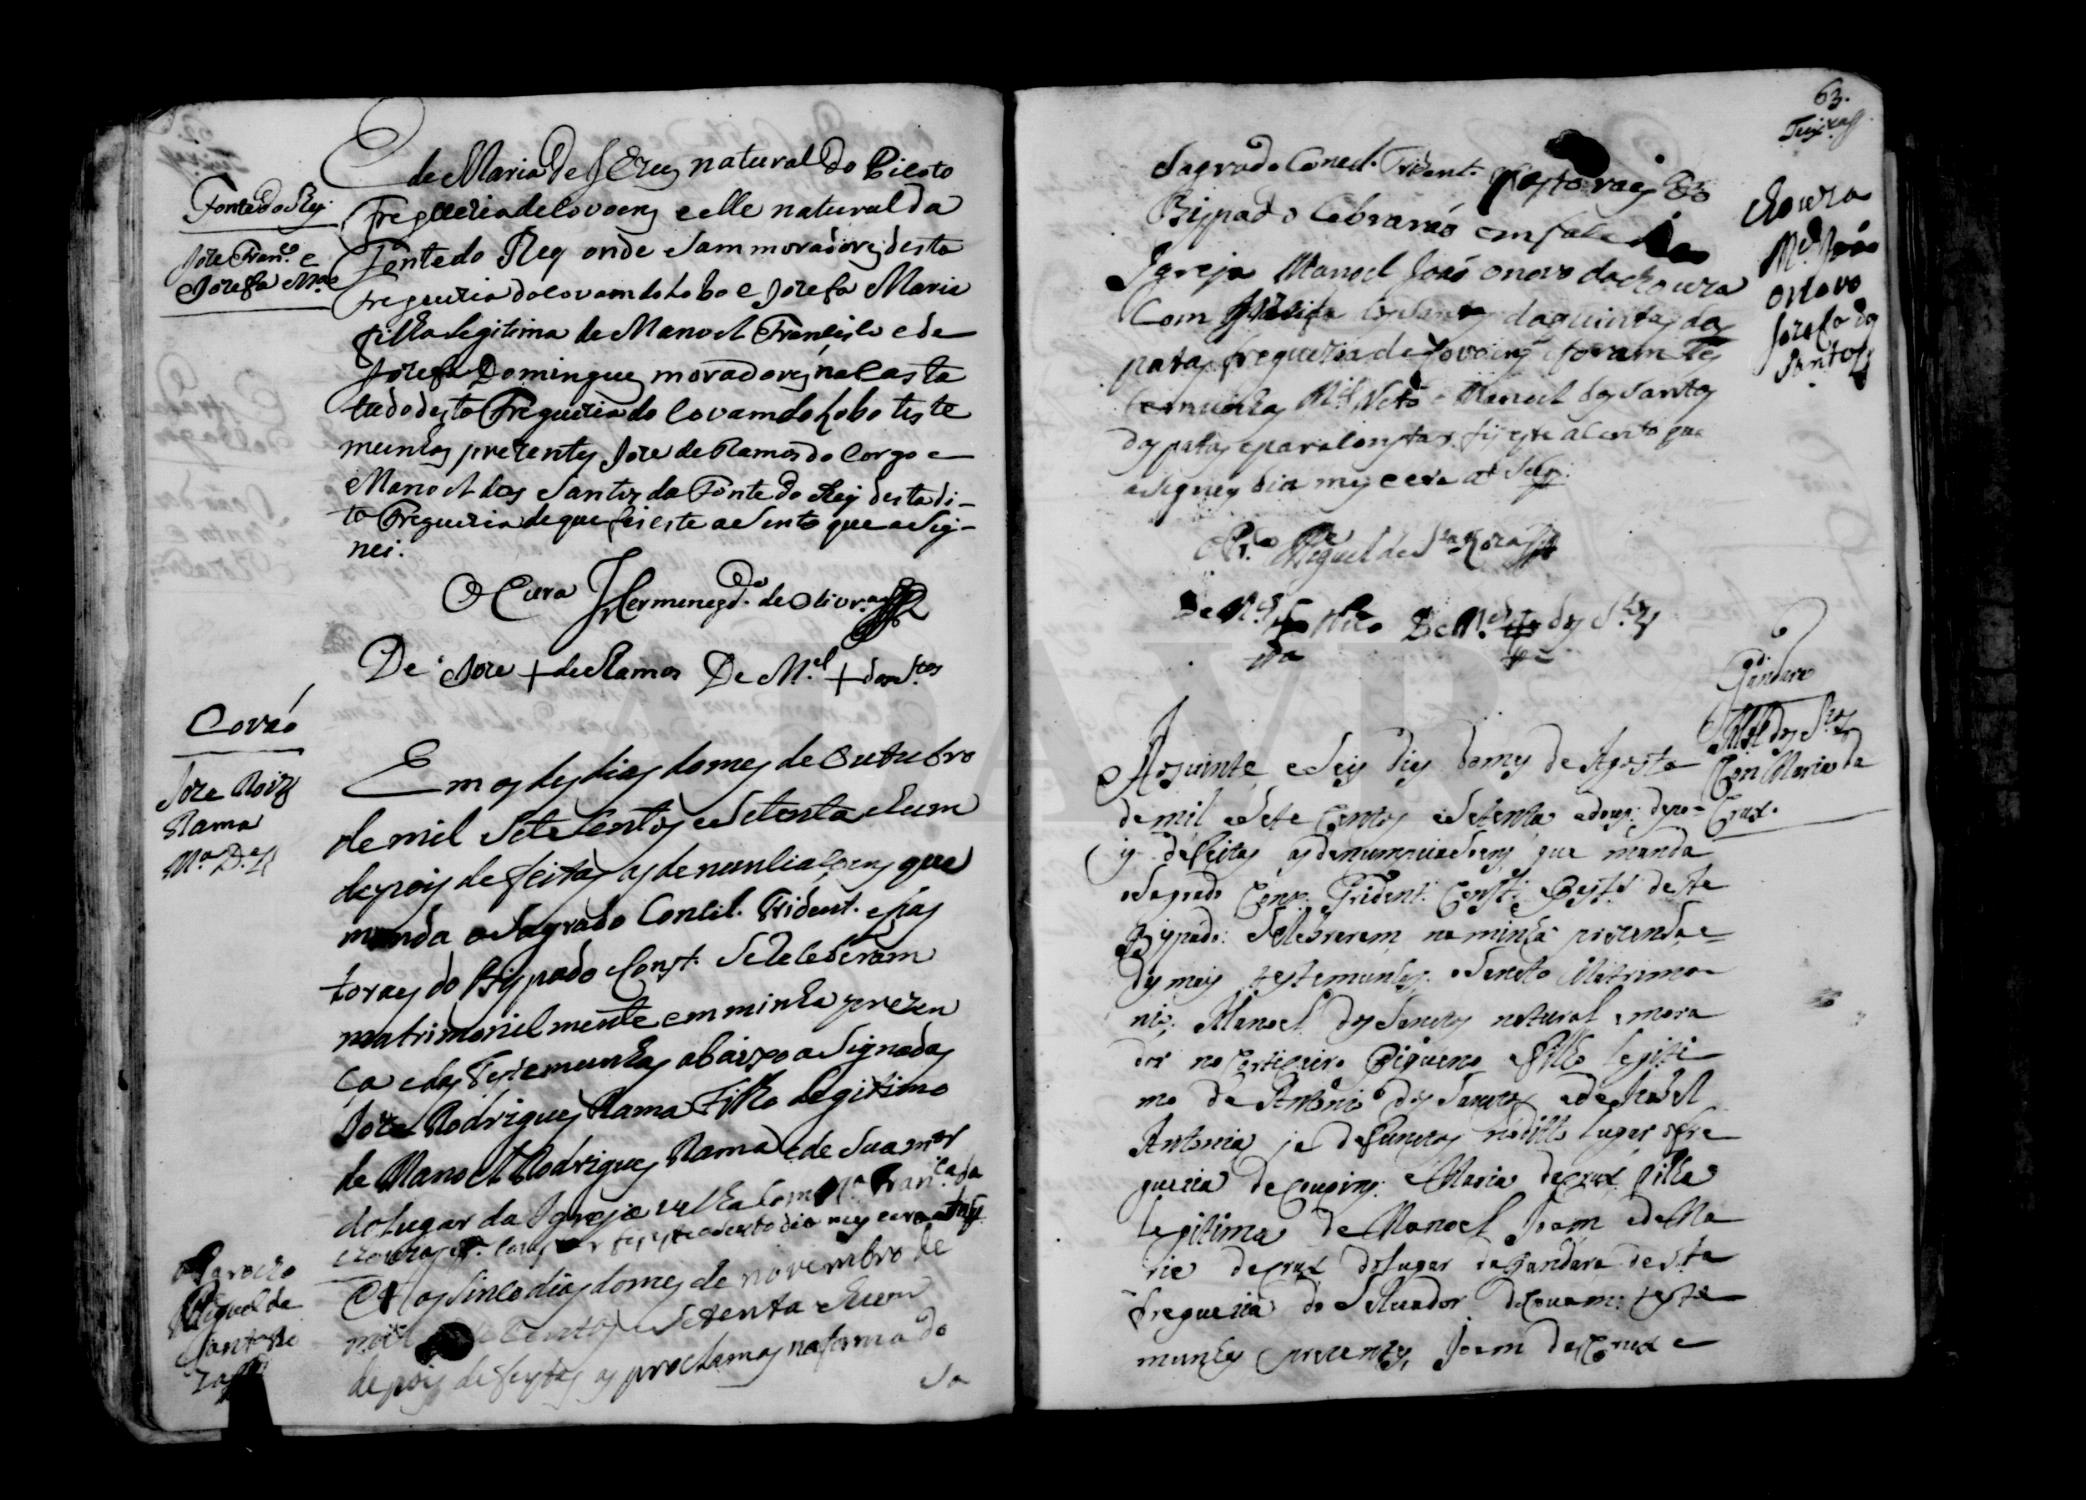 Fonte do Rey
Joze Fran.co e
Jozefa M.a
de Maria de Jezus natural do Picoto
freguezia de covoens e elle natural da
Fonte do Rey onde sam moradores desta
freguezia do covam do Lobo e Jozefa Maria
filha legitima de Manoel Francisco e de
Jozefa Domingues moradores na Casta
tudo desta Freguezia do Covam do Lobo teste
munhas prezentes Joze de Ramos do Corgo e
Manoel dos Santos da Fonte do Rey desta di-
ta Freguezia de que fis este asento que asig-
nei.
O Cura Hermeneg.do de Olivr.a
De Joze + de Ramos De M.el + dos S.tos
Covão
Joze Roiz
Rama
M.a
Em os des dias do mes de Outubro
de mil e Sete Centos e Setenta e hum
depois de feitas as denunciaçoens que
manda o Sagrado Concil. Trident. e pas
toraes do Bispado Const. Se Receberam
matrimonielmente em minha prezen
ça e das Testemunhas abaixo asignadas
Joze Rodrigues Rama Filho Legitimo
de Manoel Rodrigues Rama e de Sua m.er
do Lugar da Igreja velha com M.a Fran.ca da
dia mes e era
o Parocho
Miguel de
Aos Sinco dias do mes de novembro de
mil Centos e Setenta e hum
depois de feytas as proclamas na forma do
Sa
63.
Sagrado Concil. Trident. Pastoraes do
Bispado Celebrarão em face da
Igreja Manoel João o novo da Choura
Com Jozefa dos Santos da quinta das
patas freguezia de Covoins e foram tes
temunhas M.el Neto e Manoel dos Santos
das patas e para constar fis este asento que
asigney dia mes e era ut supra
Choura
M.el João
o novo
Jozefa dos
Santos
Miguel de
De M.el Neto De M.el dos S.tos
Gandara
M.el dos S.tos
Con Maria da
Crux.
Aos vinte e Seis dias do mes de Agosto
de mil e Sete Centos e Setenta e dous depo-
is de feitas as denunciasoens que manda
o Sagrado Conc. Trident. Const. deste
Bispado: Selebrarem na minha prezensa e
das mais testemunhas o Sancto Matrimo
nio; Manoel dos Sanctos natural e mora
dor no Corticeiro Piqueno e filho legiti
mo de Antonio dos Sanctos e de Izabel
Antonia ja defunctos no ditto lugar e fre
guezia de e Maria da crux filha
legitima de Manoel Joam e de Ma
ria da crux do lugar da Gandara desta
freguezia do Salvador de Covam: teste
munhas prezentes, Joam da Crux e